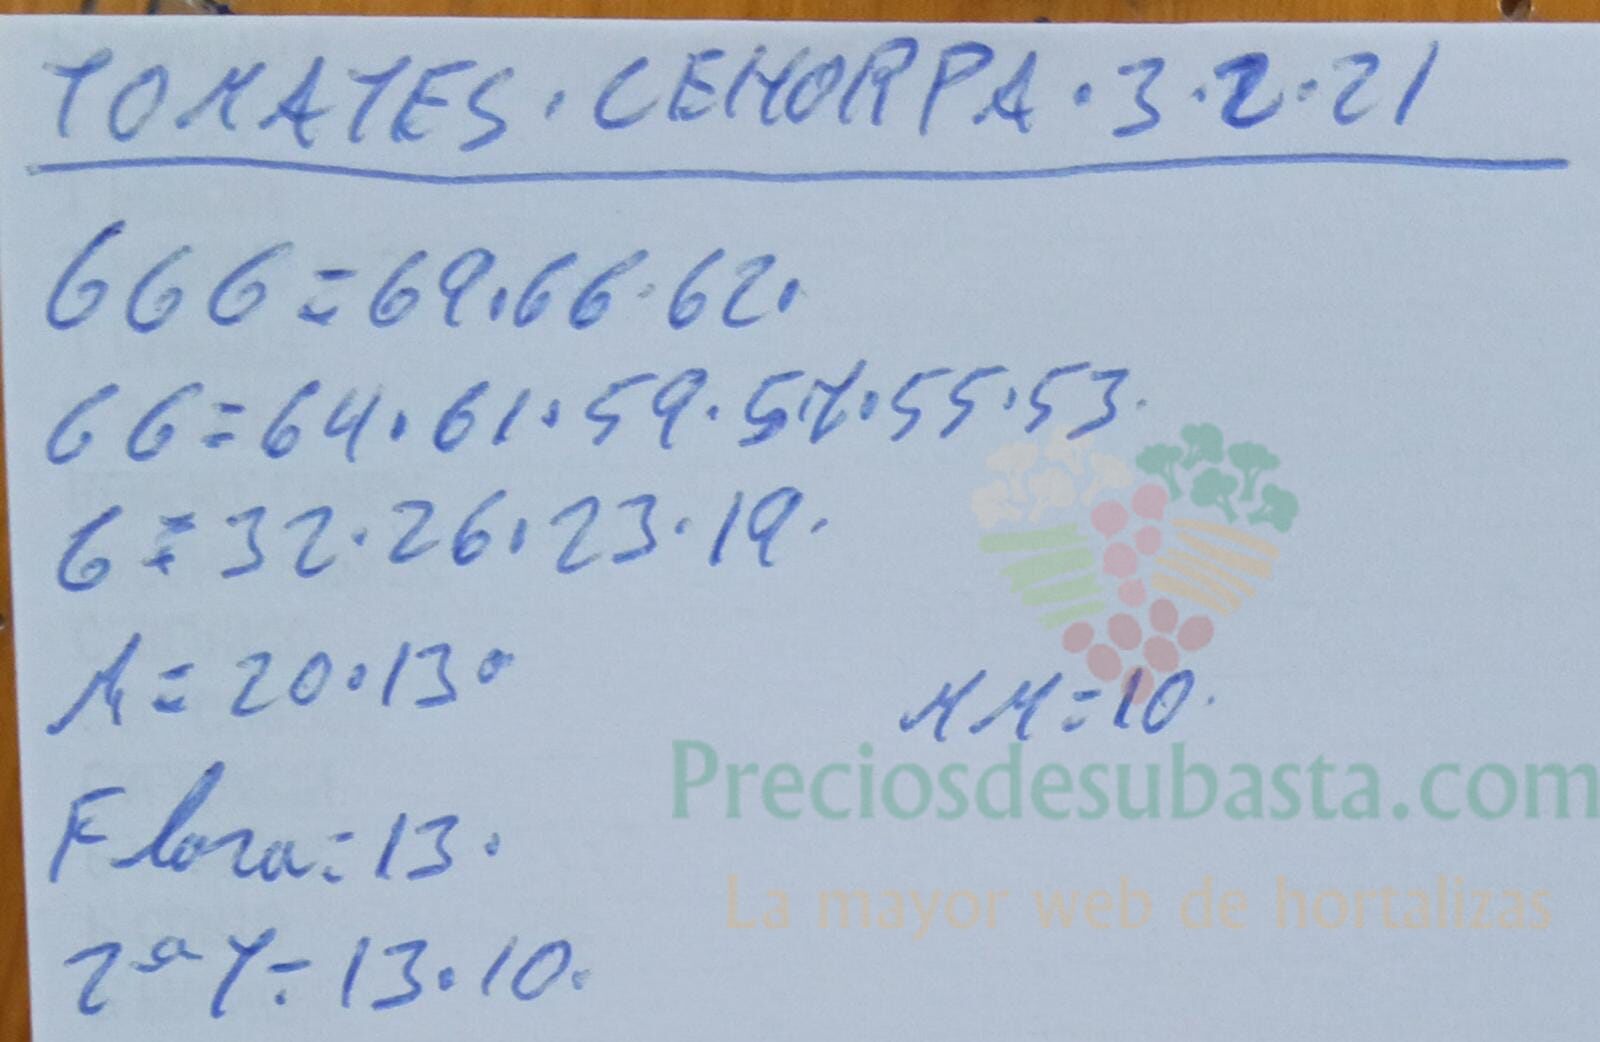 TOMATES. CEHORPA. 3.2.21
GGG = 69.66.62.
GG = 64.61.59.57.55.53.
G = 32.26.23.19.
M = 20.13.
MM = 10.
Preciosdesubasta.com
Flora = 13.
La mayor web de hortalizas
2ª Y = 13.10.